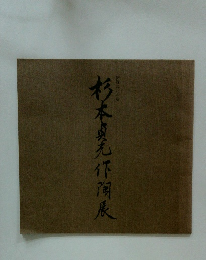 杉本貞光作陶展